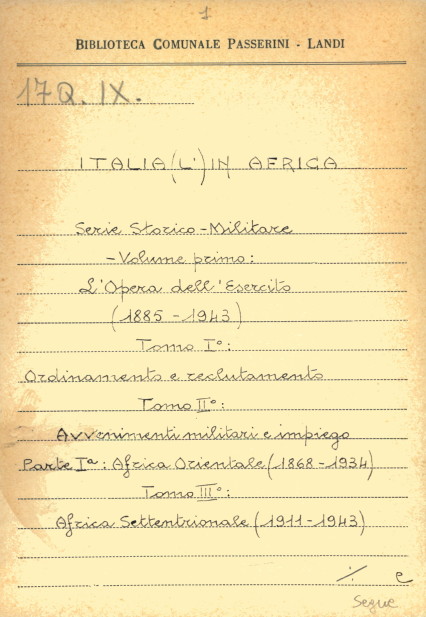 1
BIBLIOTECA COMUNALE PASSERINI - LANDI
17Q. IX.
ITALIA (L') IN AFRICA
Serie Storico-Militare
- Volume primo:
L'Opera dell'Esercito
(1885 - 1943)
Tomo I°:
Ordinamento e reclutamento
Tomo II°:
Avvenimenti militari e impiego
Parte Iª: Africa Orientale (1868 - 1934)
Tomo III°:
Africa Settentrionale (1911 - 1943)
./. e
Segue